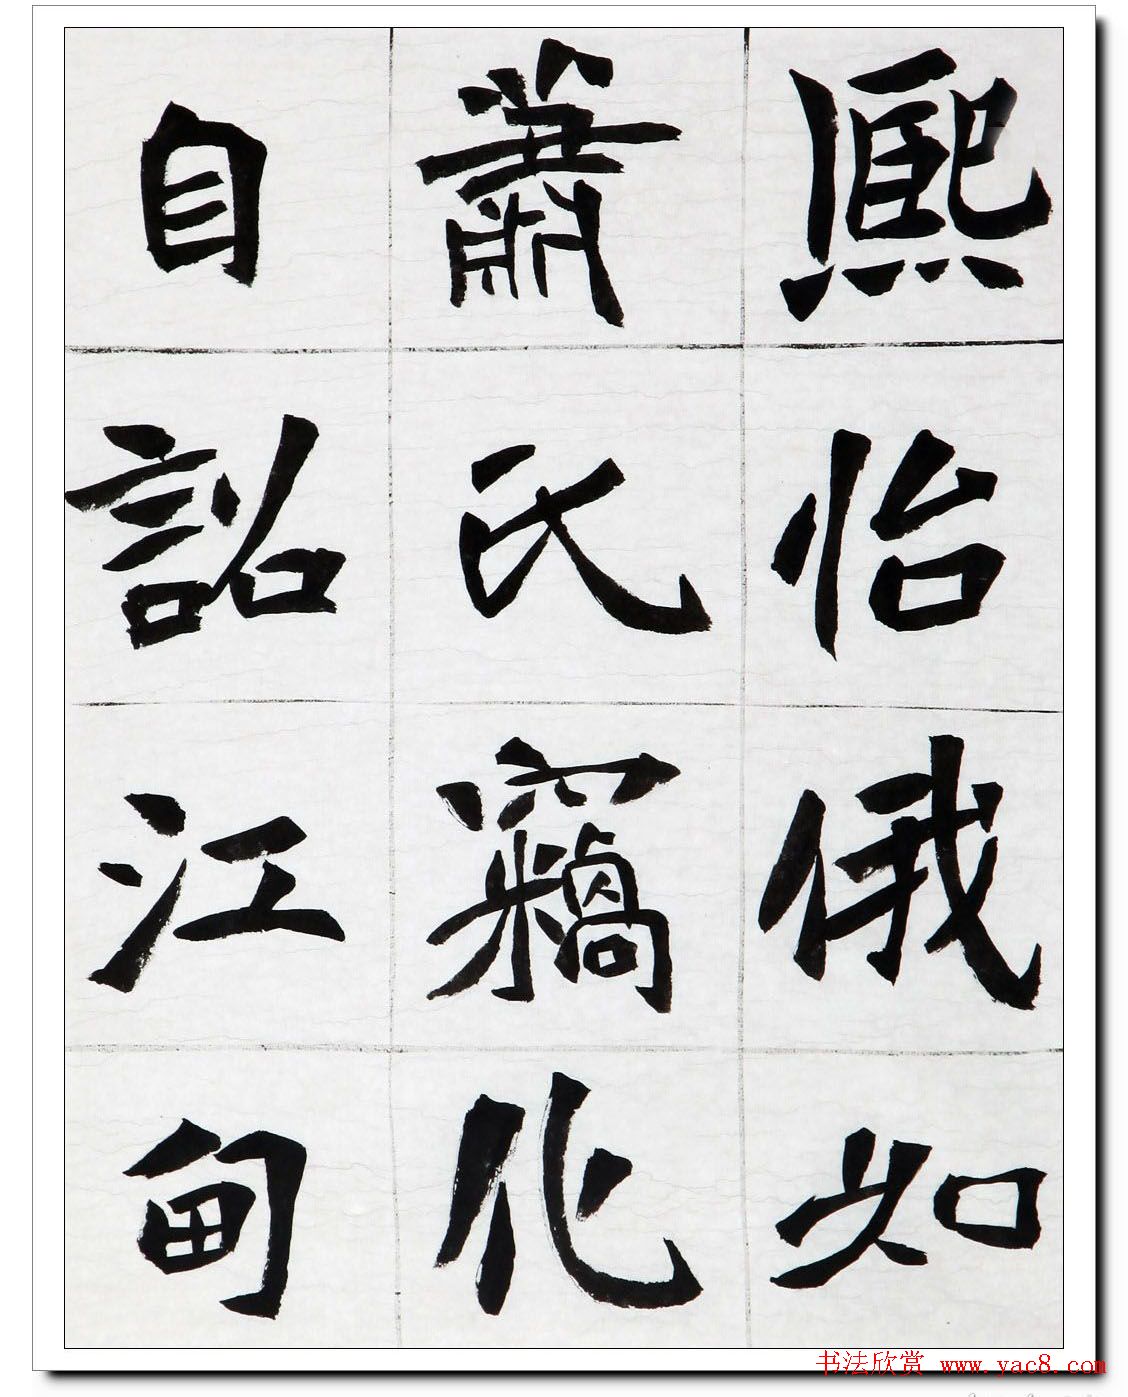 熙怡俄如
蕭氏竊化
自詒江甸
书法欣赏 www.yac8.com